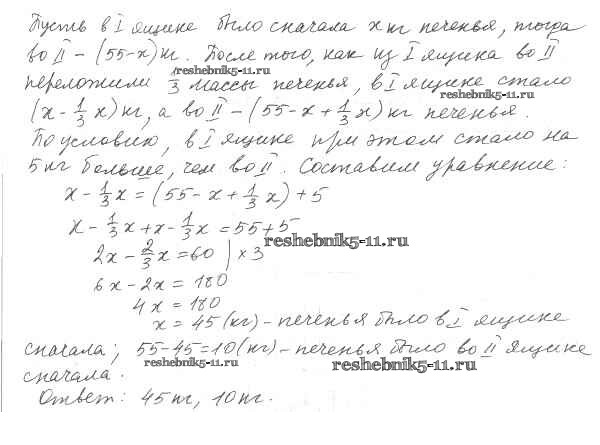 Пусть в I ящике было сначала x кг печенья, тогда
во II – (55-x) кг. После того, как из I ящика во II
reshebnik5-11.ru
переложили 1/3 массы печенья, в I ящике стало
reshebnik5-11.ru
(x - 1/3 x) кг, а во II – (55-x + 1/3 x) кг печенья.
По условию, в I ящике при этом стало на
5 кг больше, чем во II. Составим уравнение:
x - 1/3 x = (55-x + 1/3 x) + 5
x - 1/3 x + x - 1/3 x = 55+5
reshebnik5-11.ru
2x - 2/3 x = 60 | × 3
6x - 2x = 180
4x = 180
x = 45 (кг) – печенья было в I ящике
сначала; 55-45=10 (кг) – печенья было во II ящике
reshebnik5-11.ru
reshebnik5-11.ru
сначала.
Ответ: 45 кг, 10 кг.